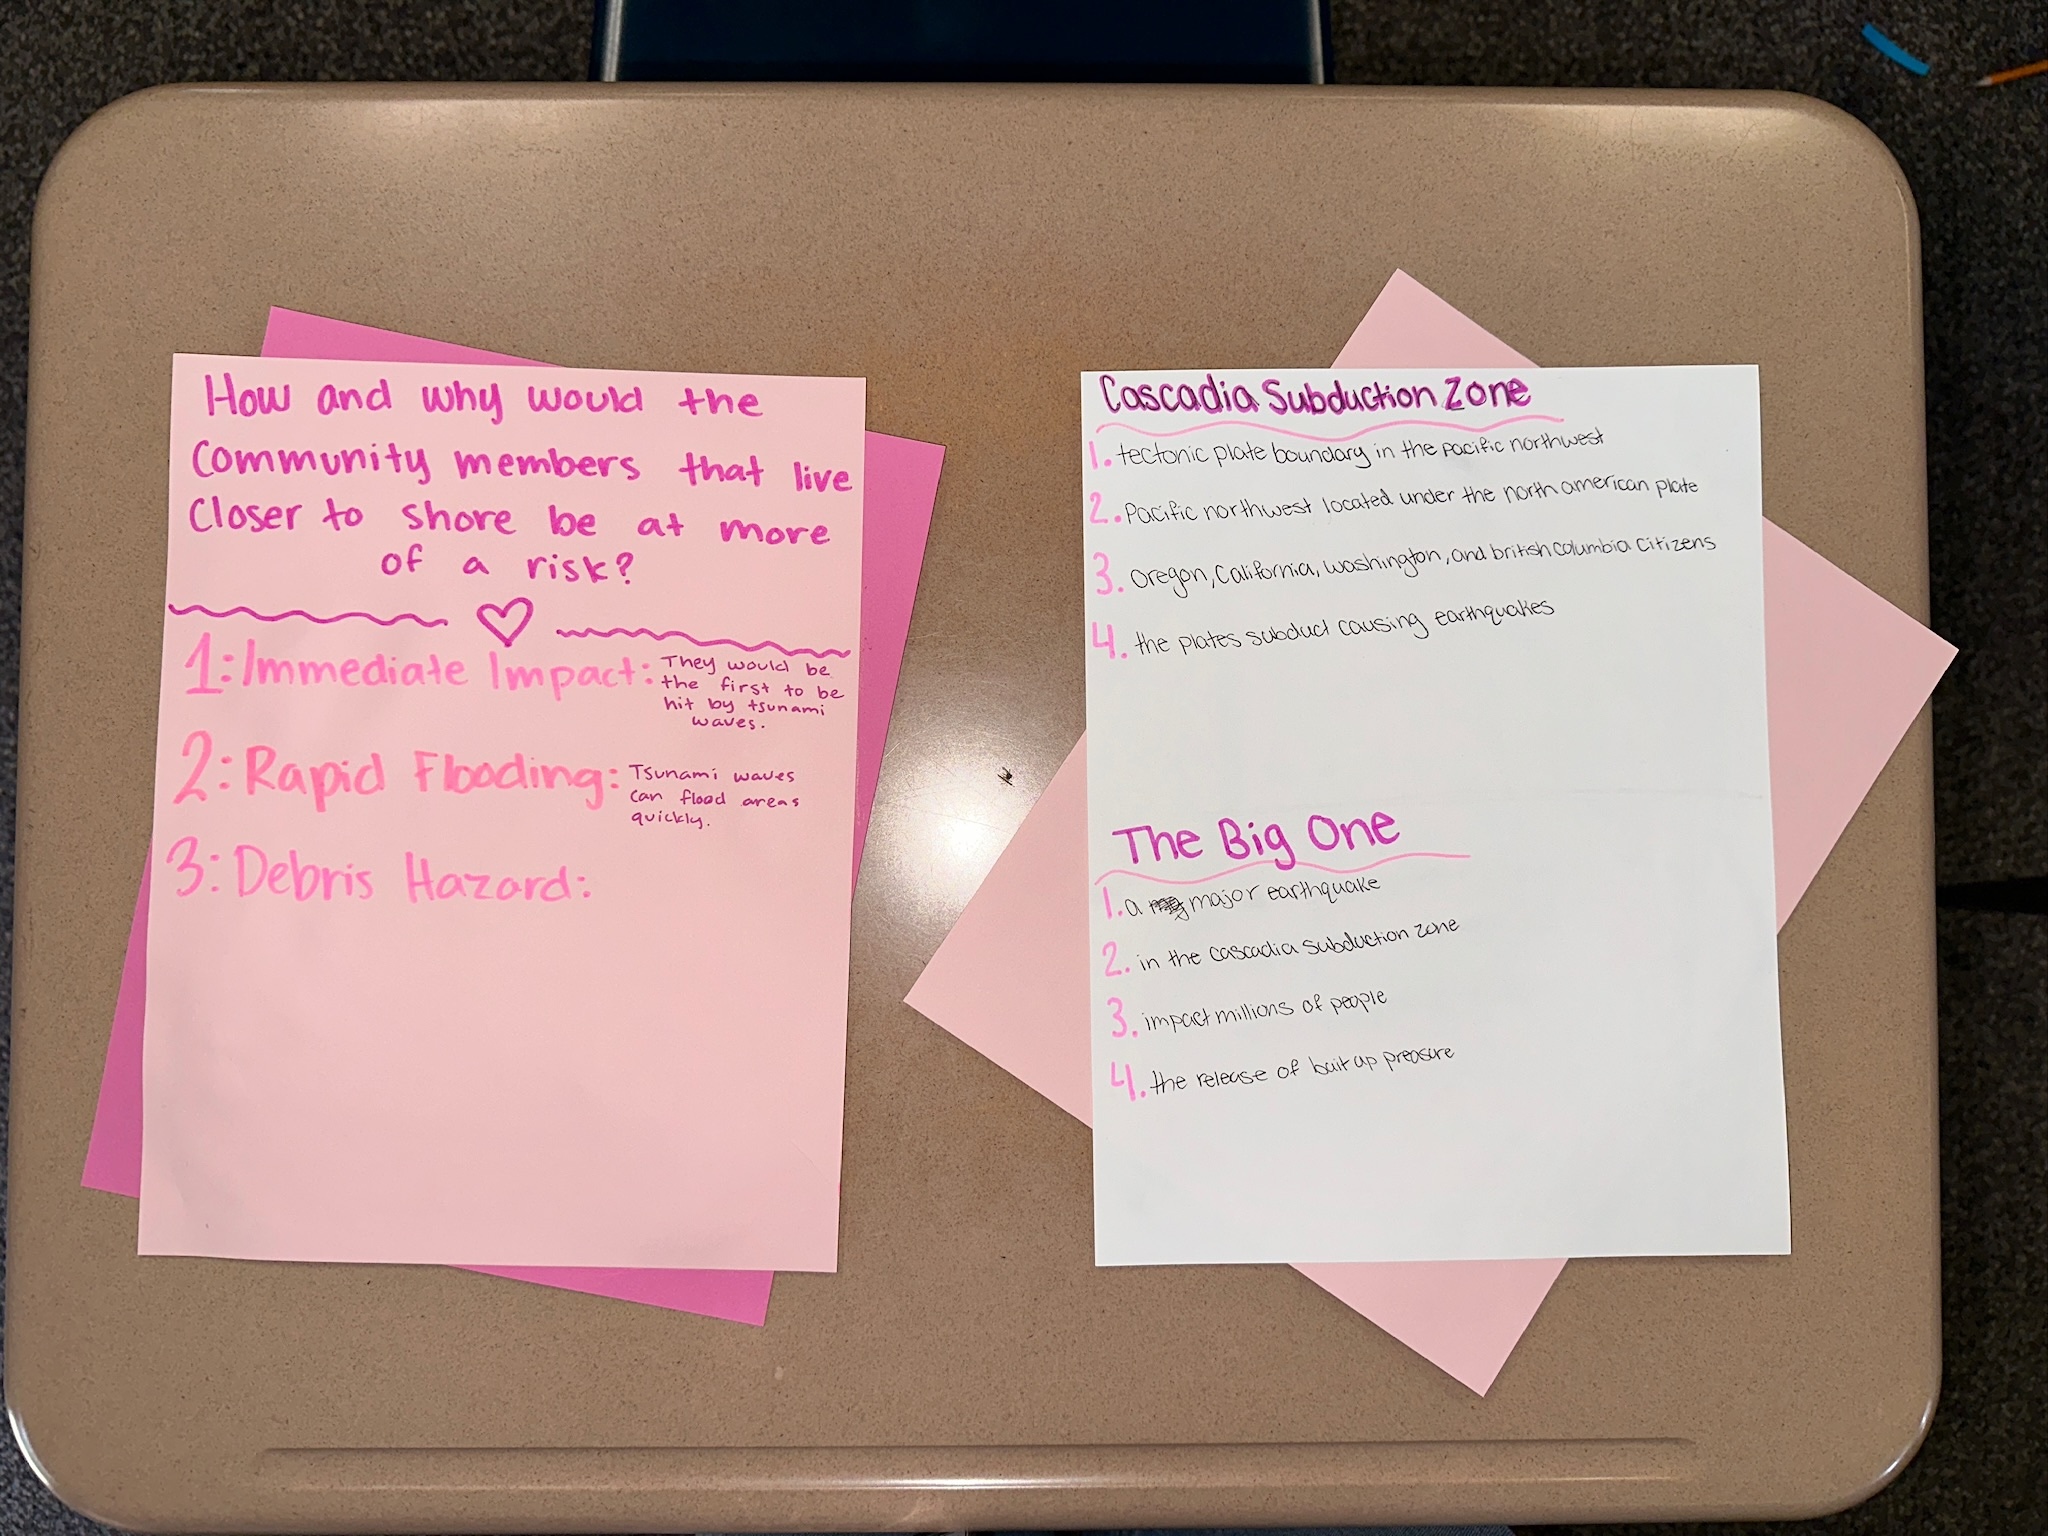 How and why would the
Community members that live
Closer to shore be at more
of a risk?
1: Immediate Impact: They would be
the first to be
hit by tsunami
waves.
2: Rapid Flooding: Tsunami waves
can flood areas
quickly.
3: Debris Hazard:
Cascadia Subduction Zone
1. tectonic plate boundary in the pacific northwest
2. Pacific northwest located under the north american plate
3. Oregon, California, washington, and british columbia citizens
4. the plates subduct causing earthquakes
The Big One
1. a major earthquake
2. in the cascadia subduction zone
3. impact millions of people
4. the release of buit up preasure